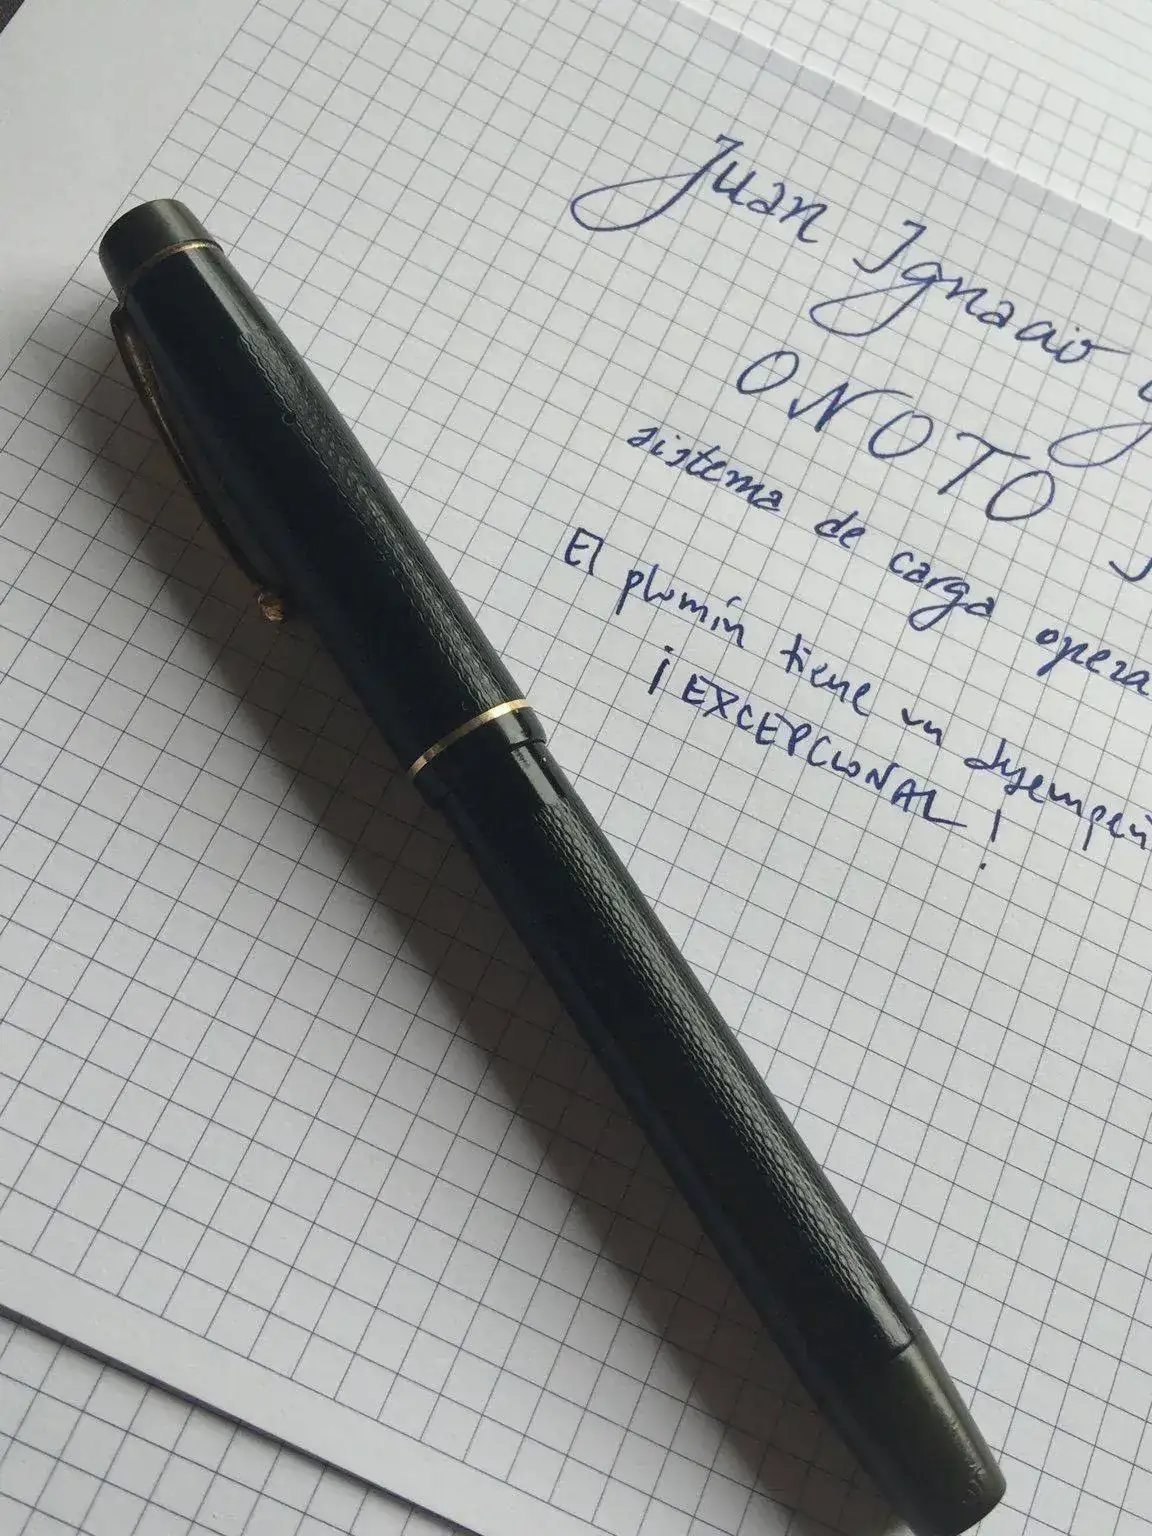 Juan Ignacio
ONOTO
sistema de carga opera
El plumín tiene un desempeñ
¡EXCEPCIONAL!